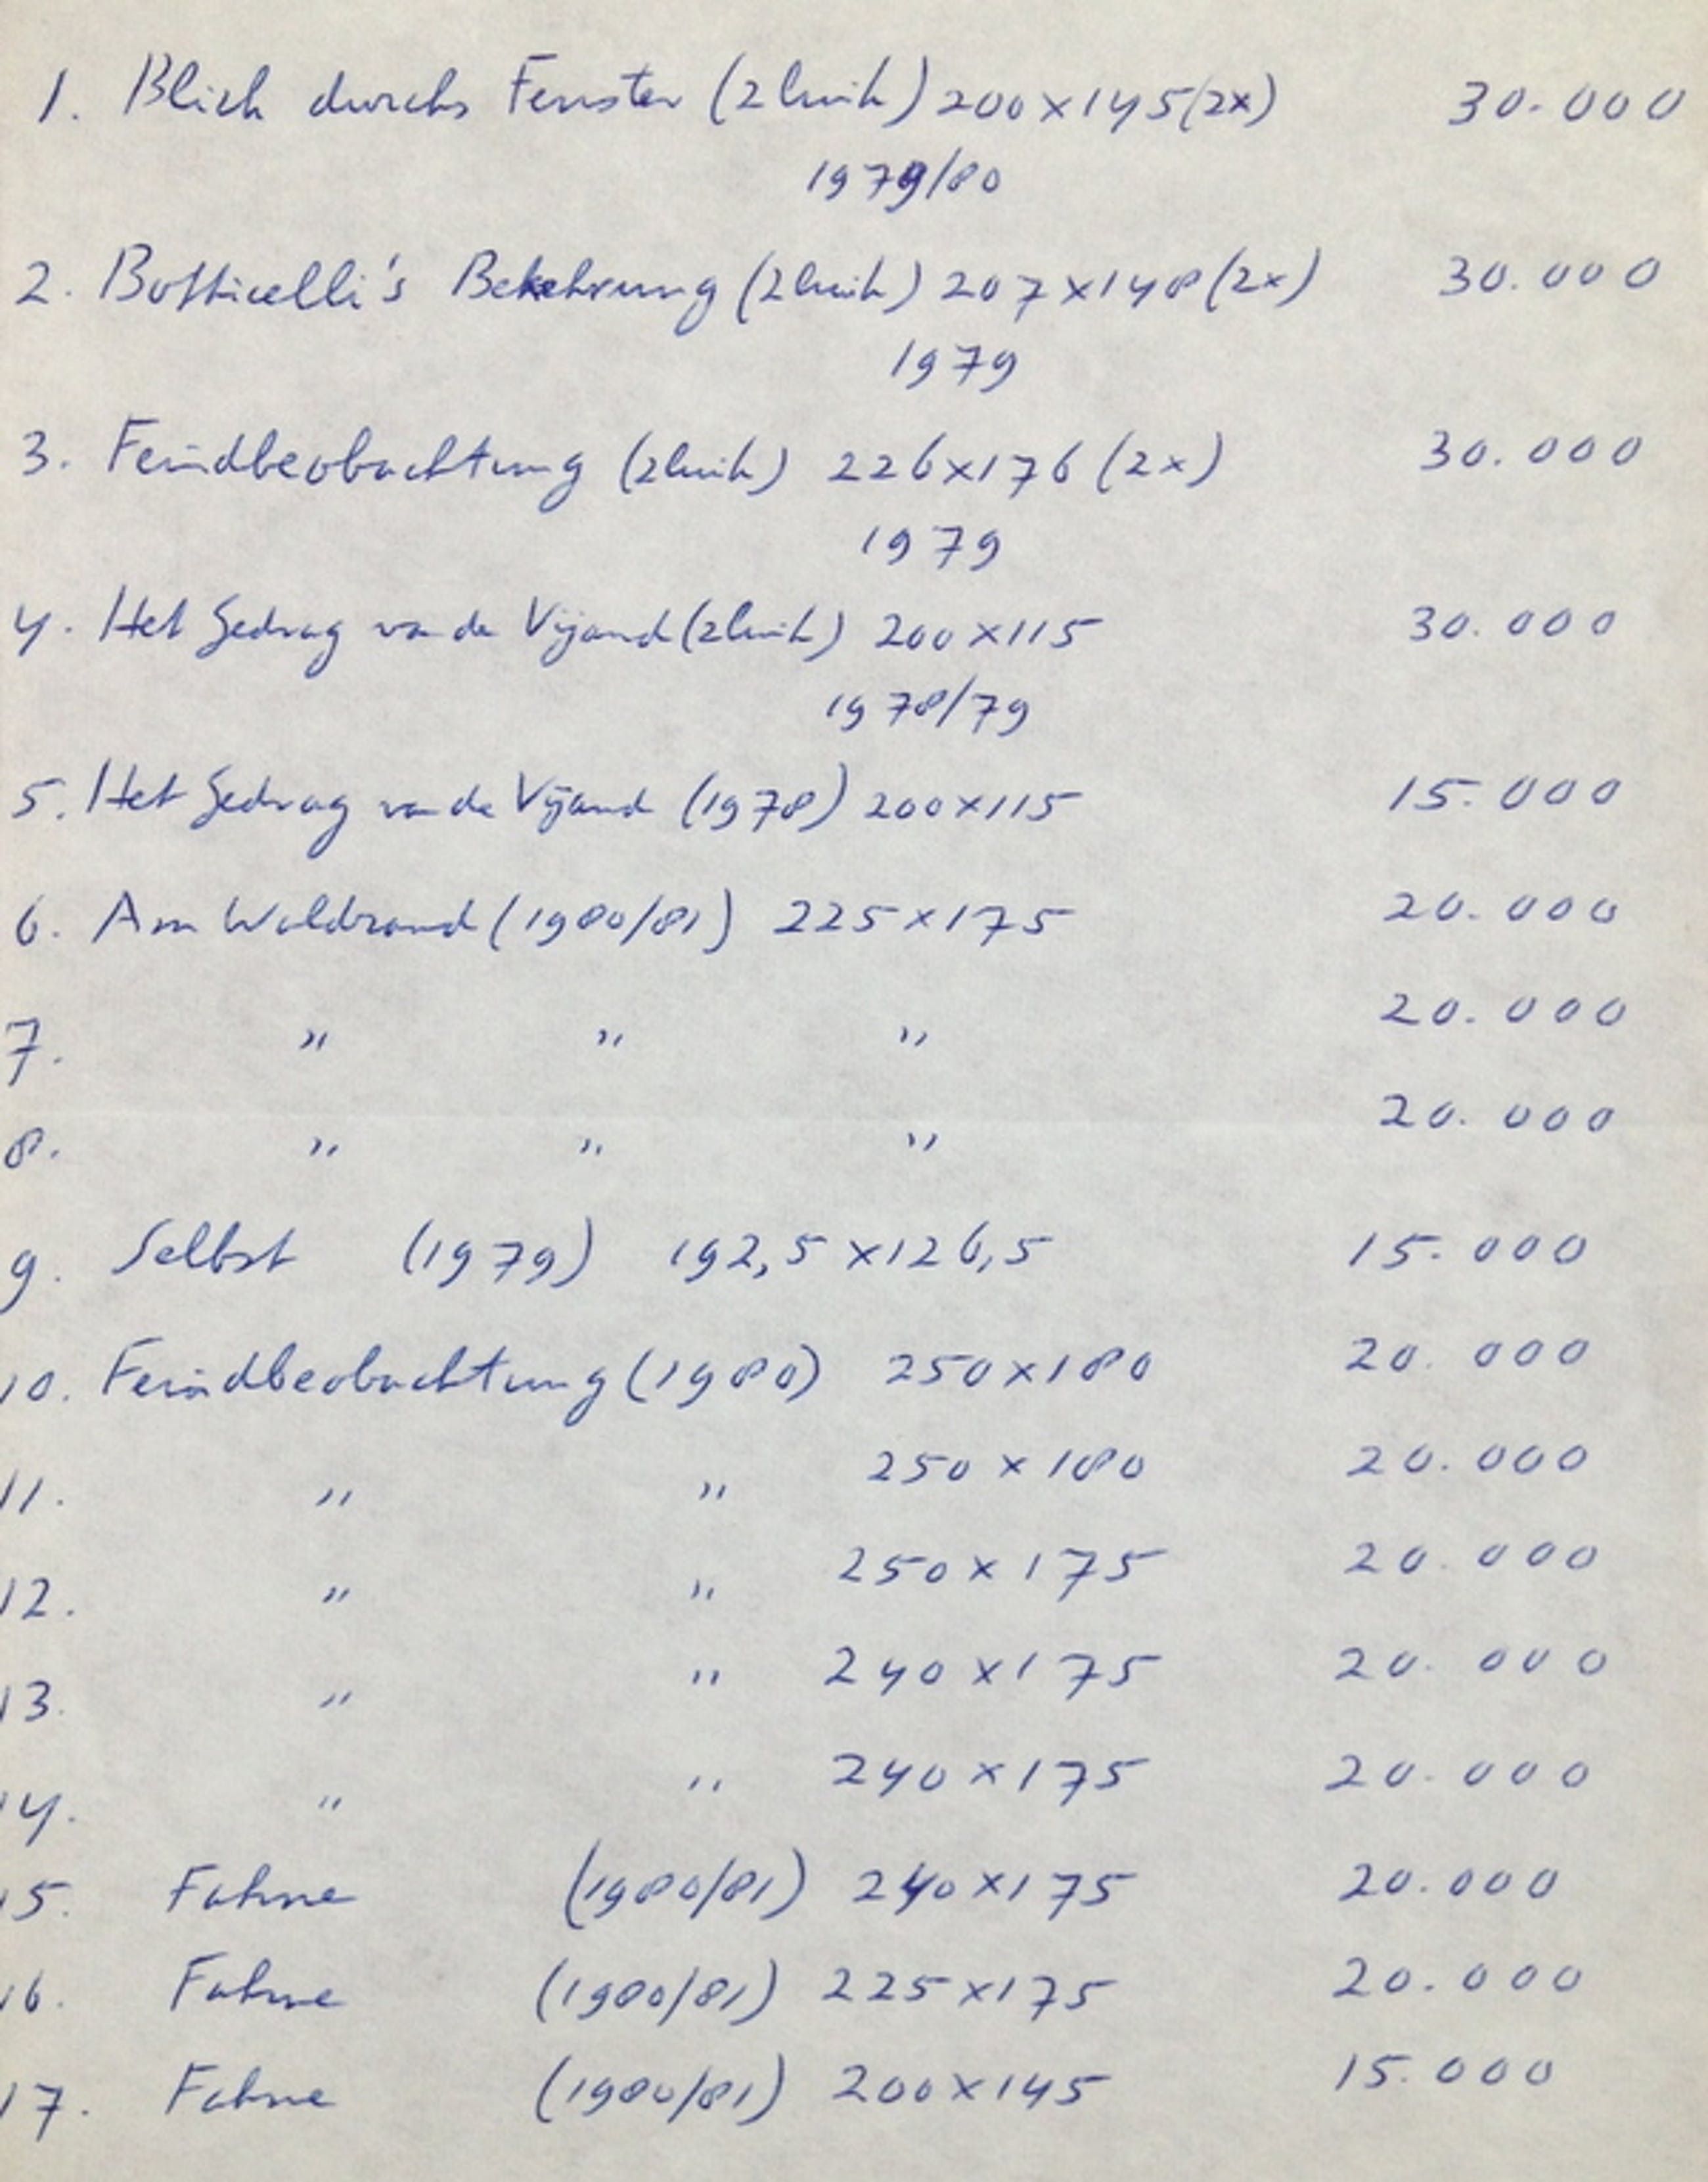 1. Blick durchs Fenster (2luik) 200 x 145 (2x) 30.000
1979/80
2. Botticelli's Bekehrung (2luik) 207 x 148 (2x) 30.000
1979
3. Feindbeobachtung (2luik) 226 x 176 (2x) 30.000
1979
4. Het Gedrag van de Vijand (2luik) 200 x 115 30.000
1978/79
5. Het Gedrag van de Vijand (1978) 200 x 115 15.000
6. Am Waldrand (1980/81) 225 x 175 20.000
7. " " " 20.000
8. " " " 20.000
9. Selbst (1979) 192,5 x 126,5 15.000
10. Feindbeobachtung (1980) 250 x 180 20.000
11. " " 250 x 180 20.000
12. " " 250 x 175 20.000
13. " " 240 x 175 20.000
14. " " 240 x 175 20.000
15. Fahne (1980/81) 240 x 175 20.000
16. Fahne (1980/81) 225 x 175 20.000
17. Fahne (1980/81) 200 x 145 15.000